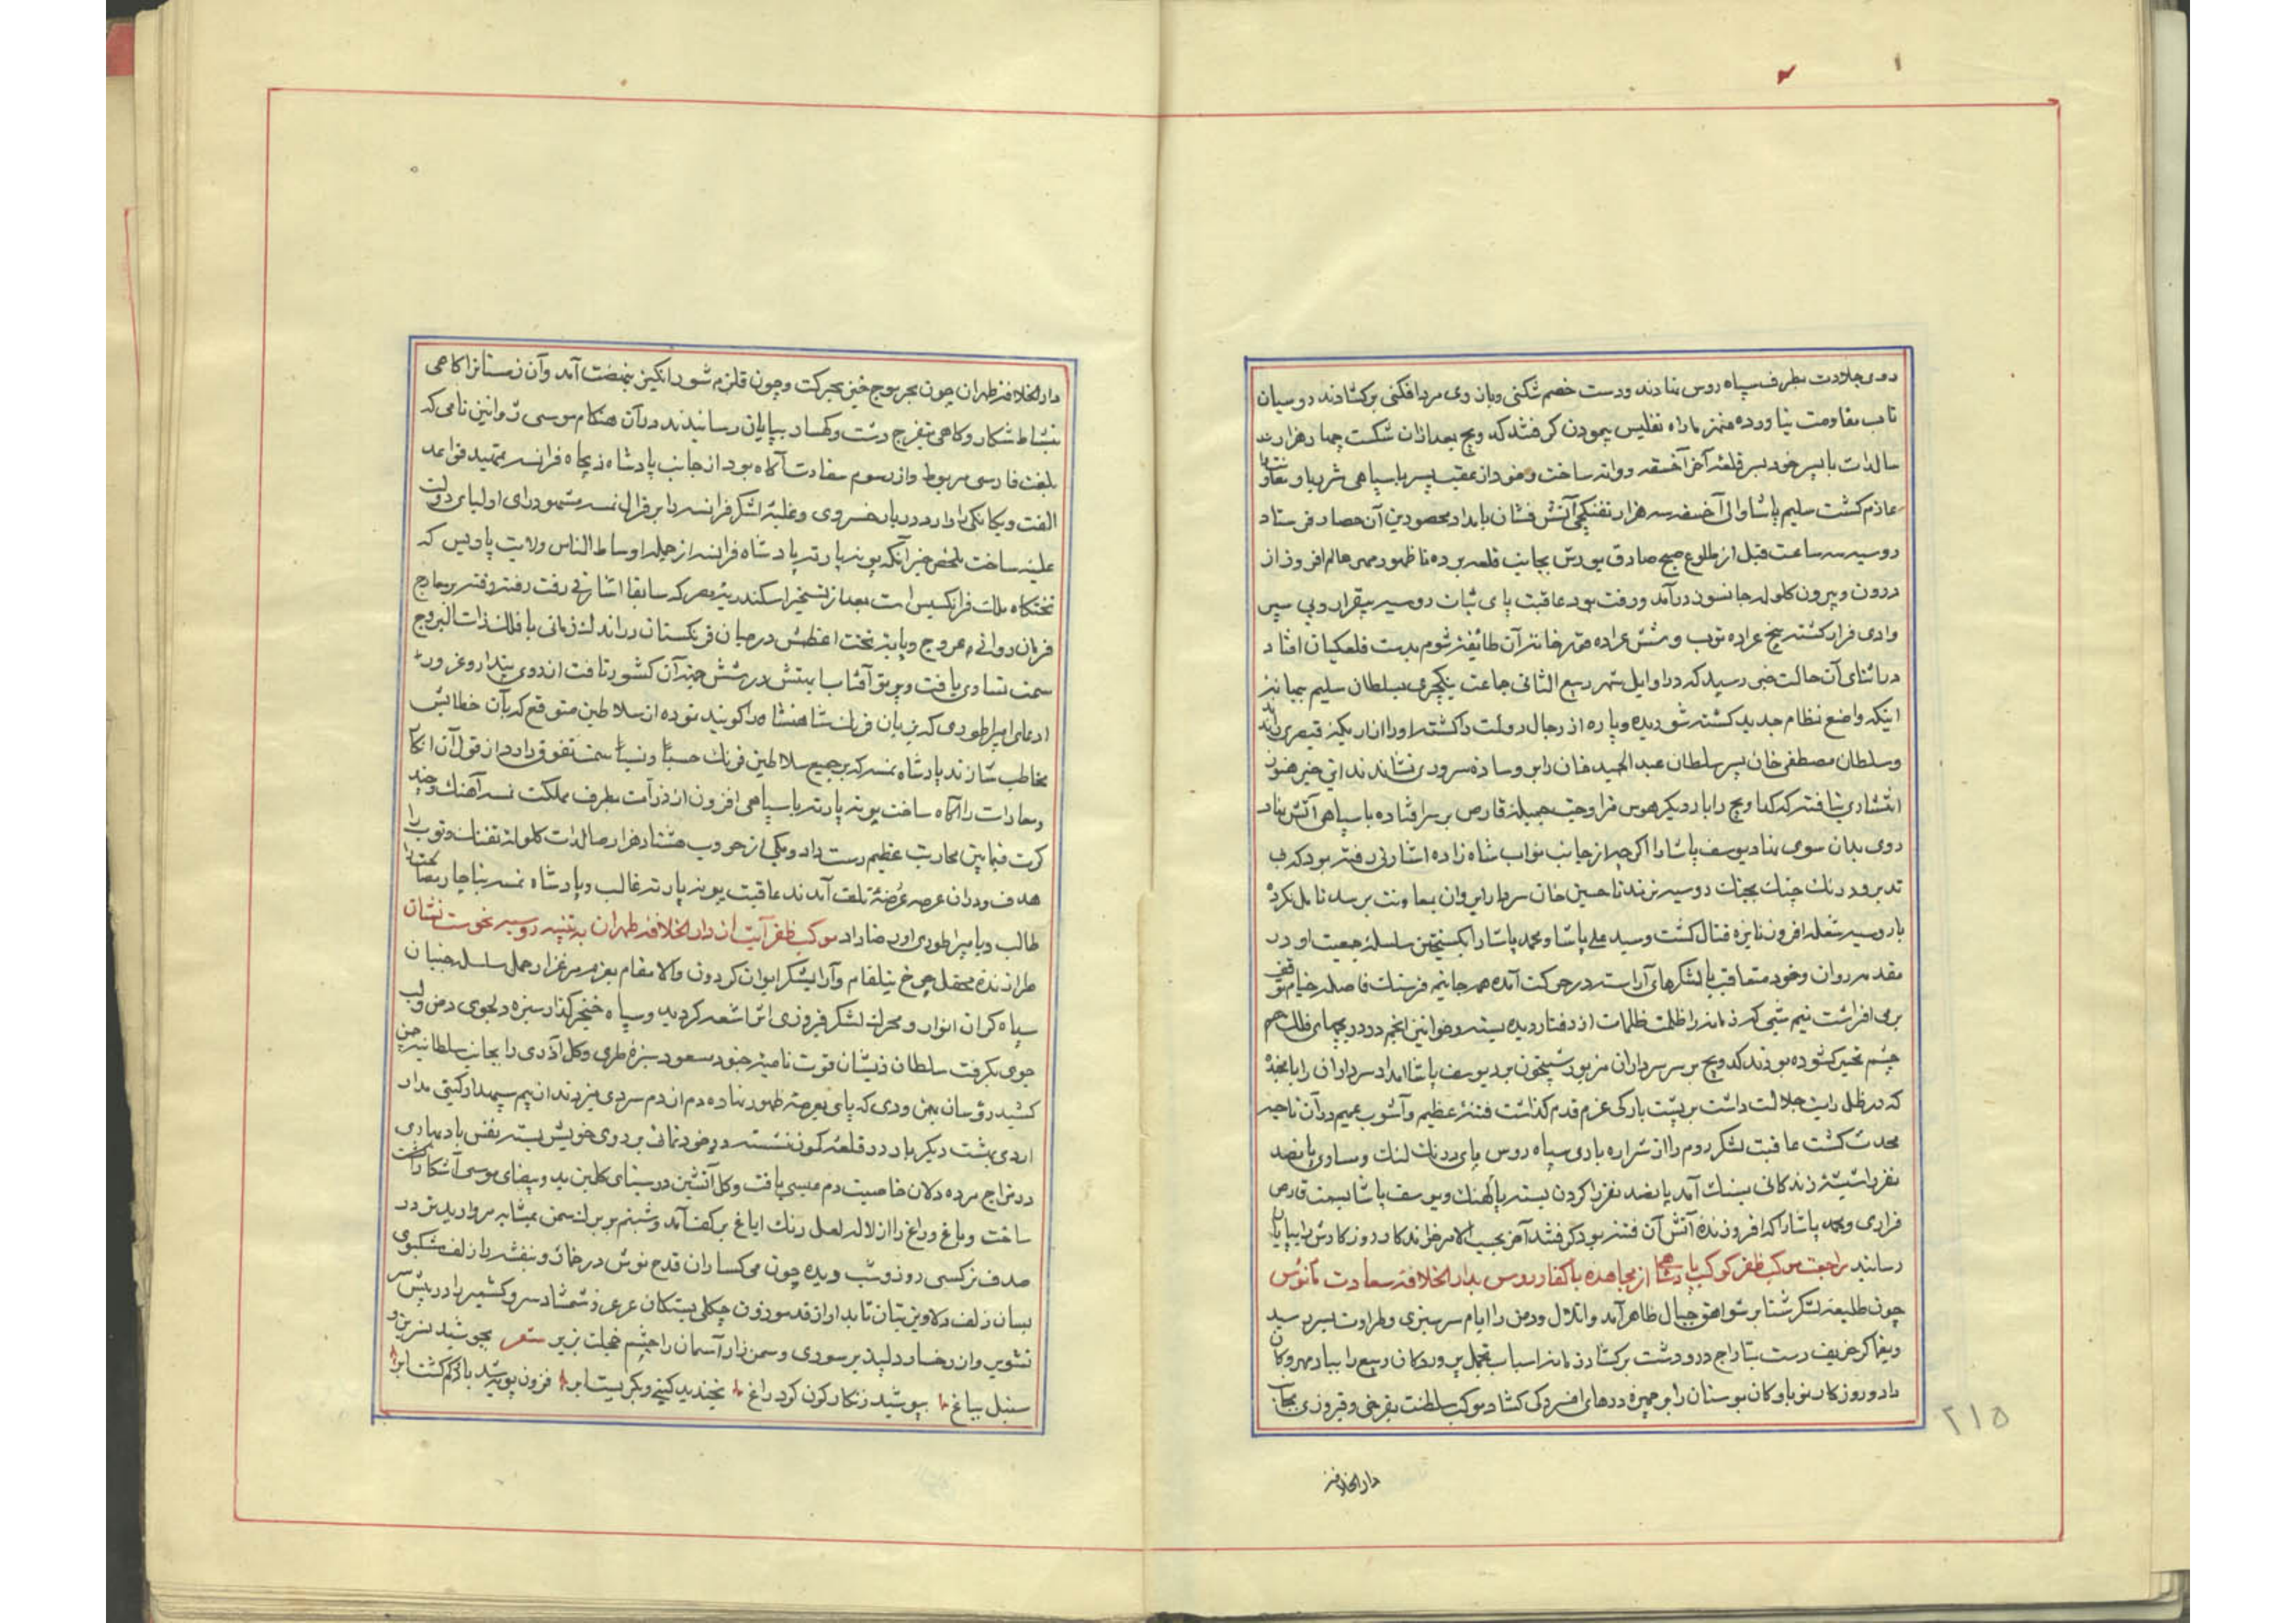 روی جلادت بطرف سپاه روس نهادند و دست خصم شکنی و بازوی مردافکنی برکشادند روسیان
تاب مقاومت نیاورده منهزما راه تفلیس پیمودن کرفتند کدویچ بعد از آن شکست چهار هزار
سالدات با پسر خود بسر قلعه آخر آخسقه روانه ساخت و خود از عقب پسر با سپاهی
عازم کشت سلیم پاشا والی آخسقه سه هزار تفنکچی آتش فشان بامداد محصورین آن حصار فرستاد
روسیه سه ساعت قبل از طلوع صبح صادق یورش بجانب قلعه برده تا ظهور مهر عالم افروز از
درون و بیرون کلوله جانسوز در آمد و رفت بود عاقبت پای ثبات روسیه بیقرار و بی سپر
وادی فرار کشته پنج عراده توپ و شش عراده قورخانه آن طائفه شوم بدست قلعکیان افتاد
در اثنای آن حالت خبر رسید که در اوایل شهر ربیع الثانی جماعت ینکچری بسلطان سلیم ببهانه
اینکه واضع نظام جدید کشته شوریده و پاره از رجال دولت را کشته او را از اریکه قیصری
و سلطان مصطفی خان پسر سلطان عبدالحمید خان را بر وساده سروری نشاندند این خبر هنوز
انتشاری نیافته که کداویچ را بار دیکر هوس مزاوجت جمیله قارص بر سر افتاده با سپاهی آتش نهاد
روی بدان سوی نهاد یوسف پاشا را اکر چه از جانب نواب شاه زاده اشارتی رفته بود که بی
تدبر و درنک چنک بجنک روسیه نزند تا حسین خان سردار ایروان بمعاونت برسد تامل نکرده
با روسیه شعله افروز نایره قتال کشت و سید علی پاشا و محمد پاشا را بکسیختن سلسله جمعیت او در
مقدمه روان و خود متعاقب با لشکرهای آراسته در حرکت آمده همه جا نیم فرسنک فاصله خیام
بری افراشت نیم شبی که زمانه را ظلمت ظلمات از دفتار دیده بسته و خوانین انجم در دریچهای فلک
چشم تحیر کشوده بودند کدویچ بر سر سرداران مزبور شبیخون برد یوسف پاشا امداد سرداران را
که در ظل رایت جلالت داشت بر پشت بارکی عزم قدم کذاشت فتنه عظیم و آشوب عمیم در آن ناحیه
محدث کشت عاقبت لشکر روم را از شراره باری سپاه روس پای درنک لنک و مساوی پانصد
نفر را شیشه زندکانی بسنک آمد پانصد نفر را کردن بسته پالهنک و یوسف پاشا بسمت قارص
فراری و محمد پاشا را که افروزنده آتش آن فتنه بود کرفتند آخر بحسب الامر خواندکار روز کارش را بپایان
رسانید مراجعت موکب ظفر کوکب پادشاهی از مجاهده با کفار روس بدار الخلافه سعادت مانوس
چون طلیعه لشکر شتا بر شواهق جبال ظاهر آمد و اتلال و دمن را ایام سرسبزی و طراوت بسر رسید
و یغماکر خریف دست بتاراج در و دشت برکشاد زمانه اسباب تجمل پروردکان ربیع را بباد مهرکان
داد و روزکار نوباوکان بوستان را بر چهره درهای افسردکی کشاد موکب سلطنت بفرخی و فیروزی بجانب
۲۱۵
دار الخلافه
دار الخلافه طهران چون بحر موج خیز بحرکت و چون قلزم شور انکیز بنهضت آمد و آن زمستان را کاهی
بنشاط شکار و کاهی بتفرج دشت و کهسار بپایان رسانیدند در آن هنکام موسی ژوانین نامی که
بلغت فارسی مربوط و از رسوم سفارت آکاه بود از جانب پادشاه ذیجاه فرانسه بتمهید قواعد
الفت و یکانکی وارد دربار خسروی و غلبه لشکر فرانسه را بر قرال نمسه مشهود رای اولیای دولت
علیه ساخت ملخص خبر آنکه بونه پارته پادشاه فرانسه از جمله اوساط الناس ولایت پاریس که
تختکاه ملک فرانکسیس است بعد از تسخیر اسکندریه مصر که سابقا اشارتی رفت رفته رفته بر معارج
فرمان روائی عروج و پایه تخت اعظمش در میان فرنکستان در اندک زمانی با فلک ذات البروج
سمت تساوی یافت و پرتو آفتاب بینش در شش جهت آن کشور تافت از روی پندار و غرور
ادعای امپراطوری که بزبان فرنک شاهنشاه را کویند نموده از سلاطین متوقع که بآن خطابش
مخاطب سازند پادشاه نمسه که بر جمیع سلاطین فرنک حسبا و نسبا سمت تفوق دارد از قول آن انکار
و معادات را آکاه ساخت بونه پارته با سپاهی افزون از ذرات بطرف مملکت نمسه آهنک و چند
کرت فیمابین محاربت عظیم دست داد و یکی از حروب هشتاد هزار صالدات کلوله تفنک و توپ را
هدف و در آن عرصه عرضه تلف آمدند عاقبت بونه پارته غالب و پادشاه نمسه بناچار مصالحت را
طالب و بامپراطوری او رضا داد موکب ظفر آیت از دار الخلافه طهران به تنبیه روسیه نحوست نشان
طرازنده محفل چرخ نیلفام و آرایشکر ایوان کردون والا مقام بعزم مرغزار حمل سلسله جنبان
سپاه کران انوار و محرک لشکر فیروزی اثر اشعه کردید و سپاه خنجر کذار سبزه دلجوی دمن و لب
جوی بکرفت سلطان ذیشان قوت نامیه جنود مسعود سبزه طری و کل آذری را بجانب سلطانیه چمن
کشید رؤسان بهمن و دی که پای بعرصه ظهور نهاده دم از دم سردی میزدند از بیم سپهدار کیتی مدار
اردی بهشت دیکر بار در قلعه کمون نشسته در خودنمائی بر روی خویش بستند نفس باد بهاری
در مزاج مرده دلان خاصیت دم عیسی یافت و کل آتشین در سینای کلبن ید و بیضای موسی آشکار
ساخت و باغ و راغ را از لاله لعل رنک ایاغ بر کف آمد و شبنم بر برک سمن بمثابه مروارید در
صدف نرکسی روز و شب دیده چون می کساران قدح نوش در خمار و بنفشه را زلف مشکبوی
بسان زلف دلاویز بتان تابدار از قد موزون چکلی پیتکان عرعر و شمشاد سرو کشمیر را در پیش سر
تشویر و از رخسار دلپذیر سوری و سمن زار آسمان را چشم خجلت بزیر شعر بجوشید نسرین و
سنبل بباغ بپوشید زنکارکون کرد راغ بخندید کیتی و بکریست ابر فزون